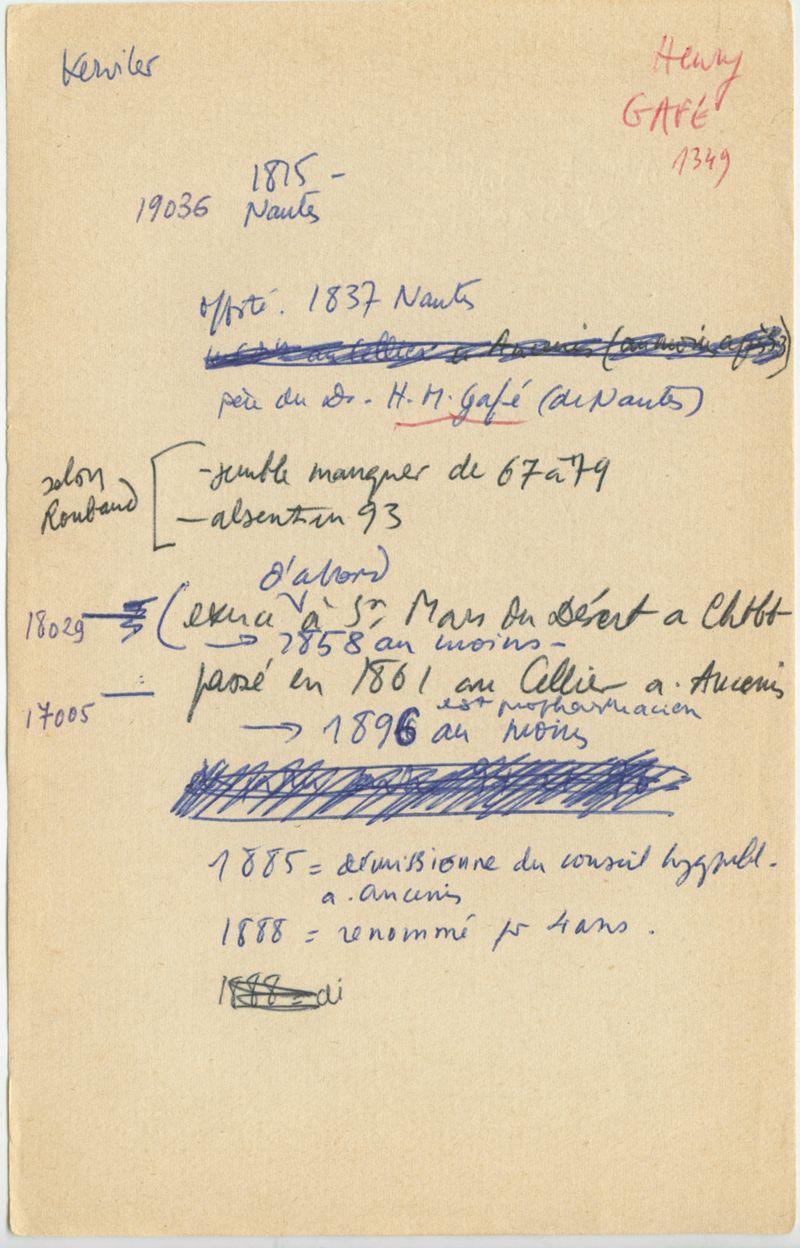 Kerviler
Henry
GAFÉ
1349
1815 -
19036 Nantes
offsté. 1837 Nantes
au Cellier a Ancenis (au moins
père du Dr. H.M. Gafé (de Nantes)
selon
Roubaud
- semble manquer de 67 à 79
- absent en 93
d'abord
18029 (exerce à St Mars du Désert a Chtbt
→ 1858 au moins -
passé en 1861 au Cellier a. Ancenis
17005
est propharmacien
→ 1896 au moins
1885 = démissionne du conseil hygpubl.
a. Ancenis
1888 = renommé pr 4 ans.
1888 = di